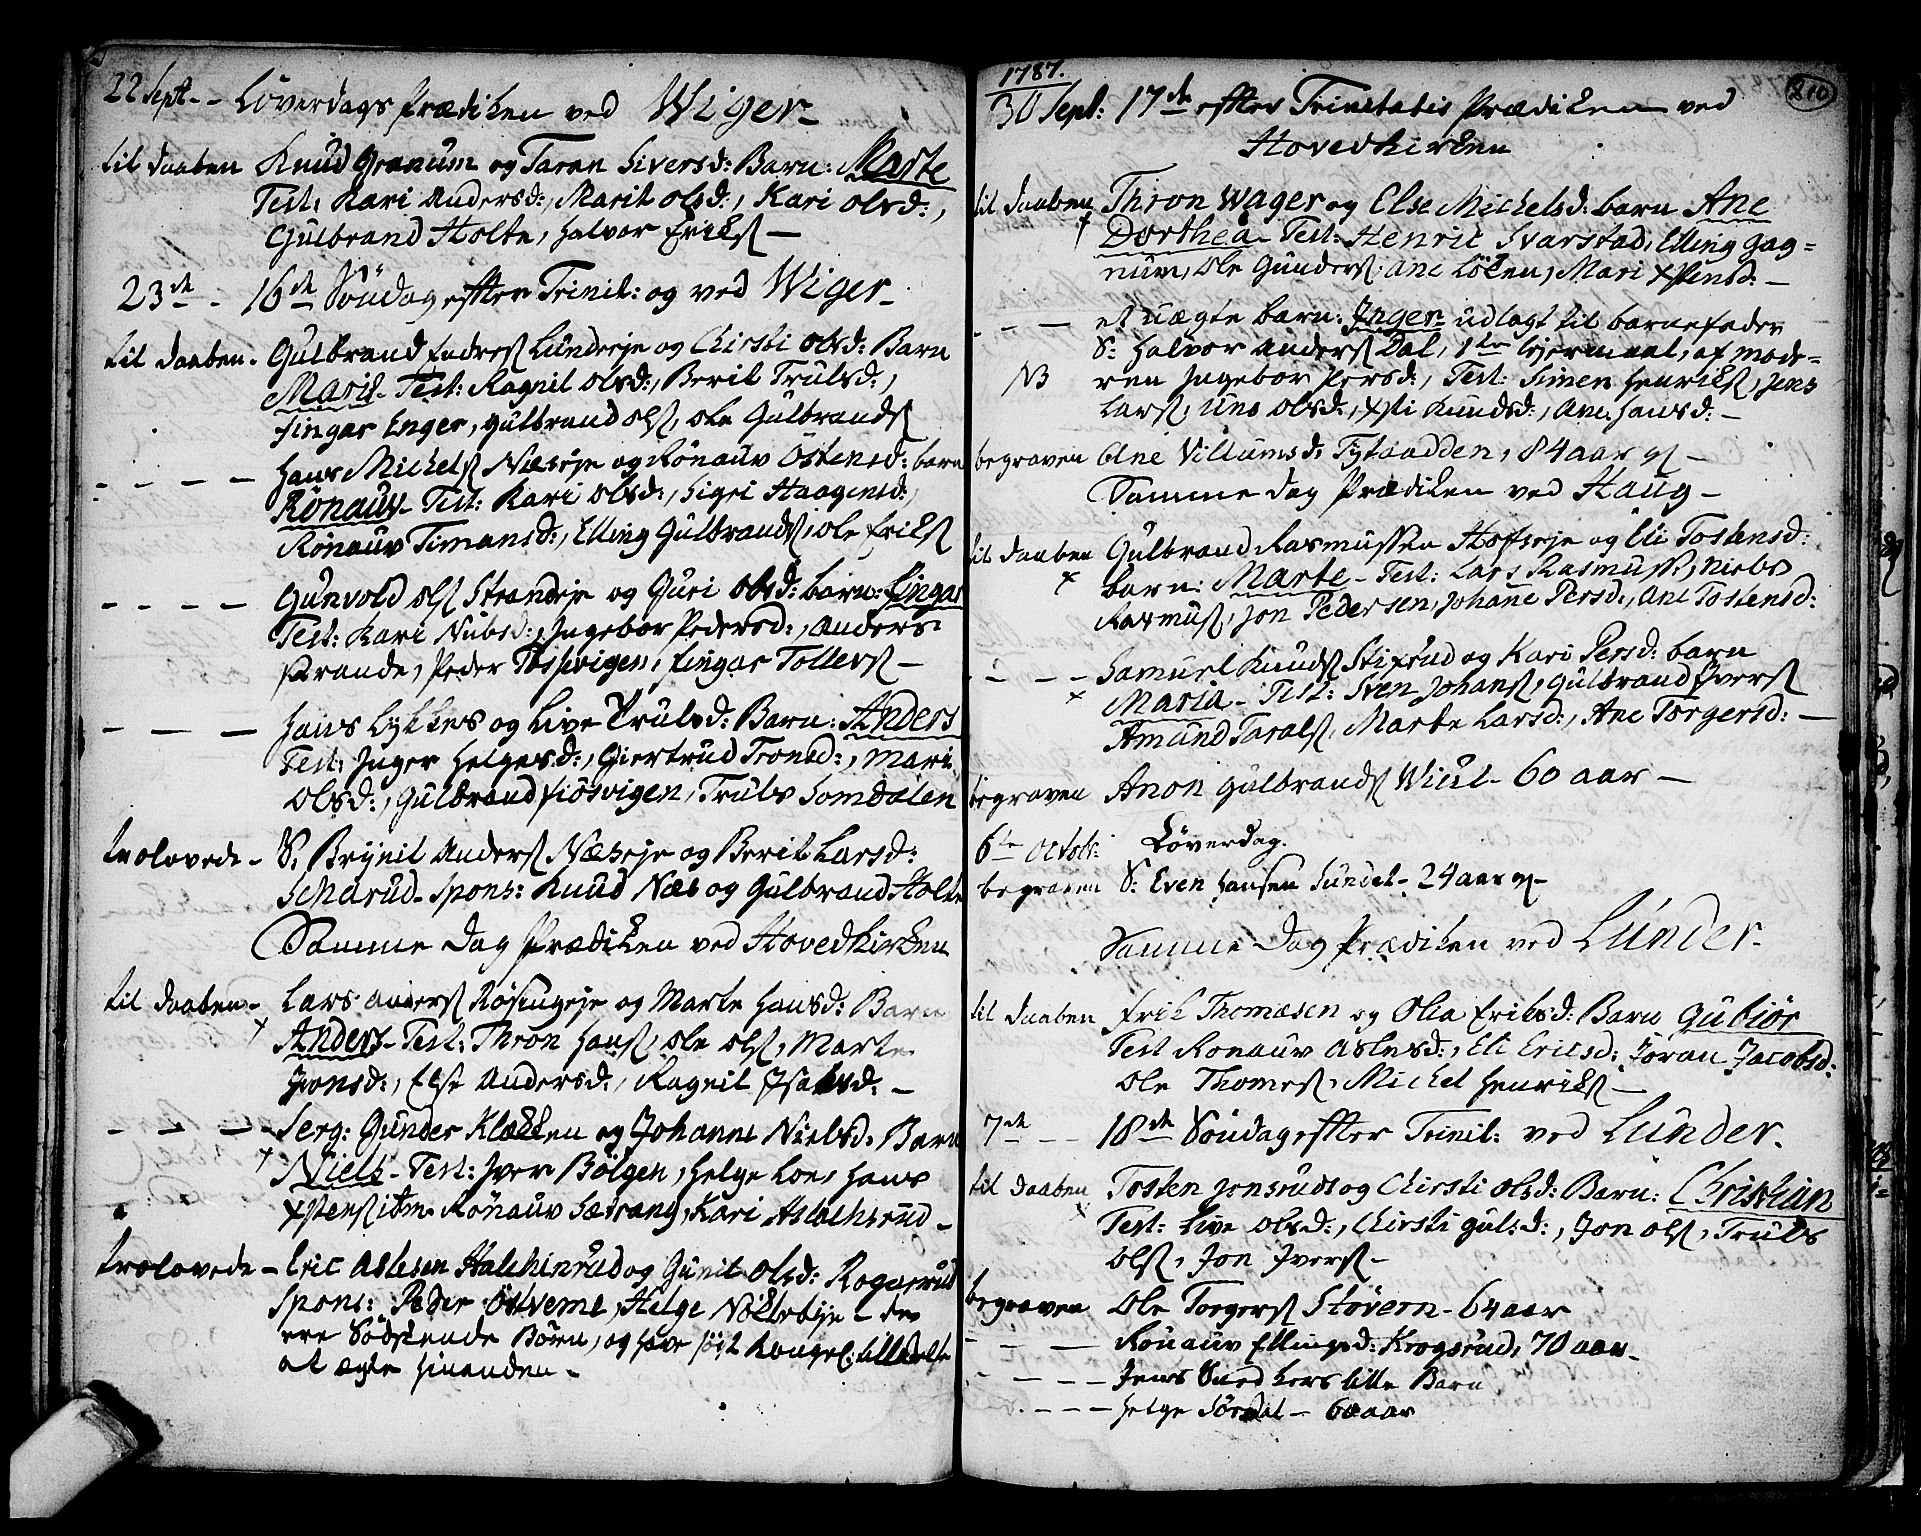 22 Sept. - Löverdags Prædiken ved Wiger -
til daaben Knud Granum og Taran Siversd: Barn: Marte
Test: Kari Andersd:, Marit Olsd:, Kari Olsd:,
Gulbrand Holte, Halvor Eriks. -
23de - 16de Söndag effter Trinit: og ved Wiger -
til daaben - Gulbrand Endres. Lunderje og Chirsti Olsd: Barn
Marit - Test: Ragnil Olsd:, Berit Trulsd:,
Fingar Enger, Gulbrand Ols. Ole Gulbrands.
- - - - Hans Michels. Næseje og Rönauv Östensd: barn
Rönauv - Test: Kari Olsd:, Sigri Haagensd:,
Rönauv Timansd:, Elling Gulbrands., Ole Eriks.
- - - - Gunvold Ols. Strandeje og Guri Olsd: barn: Fingar
Test: Kari Nubsd:, Ingebor Pedersd:, Anders
Strande, Peder Fiösvigen, Fingar Tollevs. -
- - - Hans Lykkens og Live Trulsd: Barn: Anders
Test: Inger Helgesd:, Giertrud Tronsd:, Mari
Olsd:, Gulbrand Fiösvigen, Truls Somdalen
trolovede - S. Brynil Anders. Næseje og Berit Larsd:
Scharud - Spons: Knud Næs og Gulbrand Holte
Samme Dag Prædiken ved Hovedkirken
til daaben - Lars Anders. Rösingeje og Marte Hansd: Barn
Anders - Test: Thron Hans., Ole Ols., Marte
Jonsd:, Else Andersd:, Ragnil Isaksd: -
- - - - Serg: Gunder Klækken og Johanne Nielsd: Barn
Niels - Test: Iver Bölgen, Helge Loe, Hans
Xstens. Rönauv Sætrang, Kari Aslachsrud -
trolovede - Eric Aslesen Halchinrud og Gunil Olsd: Rogerud
Spons: Peder Olveme, Helge Nökleby - de
ere Södskende Börn, og have söft Kongel: tilladelse
at ægte hinanden -
1787. 210
30 Sept: 17de effter Trinitatis Prædiken ved
Hovedkirken
til daaben Thron Wager og Else Michelsd: barn Ane
Dorthea - Test: Henric Svarstad, Elling Gag=
num, Ole Gunders. Ane Löken, Mari Xstensd: -
- - - et uægte barn: Inger udlagt til barnefader
S: Halvor Anders. Dal, 1te lejermaal, af mode=
NB ren Ingebor Persd:, Test: Simen Henriks., Jens
Lars., Una Olsd:, Xsti Knudsd:, Ane Hansd: -
begraven Ane Villumsd: 84 aar gl -
Samme dag Prædiken ved Haug -
til daaben Gulbrand Rasmussen Hofseje og Eli Tostensd:
barn: Marte - Test: Lars Rasmus., Niels
Rasmus., Jon Pedersen, Johane Persd:, Ane Tostensd:
- - - - Samuel Knuds. Stixrud og Kari Persd: barn
Maria - Test: Sven Johans., Gulbrand Ivers.
Amund Tarals. Marte Larsd:, Ane Torgersd: -
begraven Anon Gulbrands. Wiul - 60 aar -
6te Octob: Löverdag.
begraven S: Even Hansen Sundet - 24 aar gl -
Samme Dag Prædiken ved Lunder -
til daaben Erik Thomæsen og Olia Eriksd: Barn Gubiör
Test Ronauv Aslesd:, Eli Ericsd: Jöran Jacobsd:
Ole Thomes., Michel Henriks. -
7de - - 18de Söndag effter Trinit: ved Lunder.
til daaben Tosten Jonsrud og Chirsti Olsd: Barn: Christian
Test: Live Olsd:, Chirsti Gulsd:, Jon Ols., Truls
Ols., Jon Ivers. -
begraven Ole Torgers. Stövern - 64 aar
- - - Rönauv Ellingsd: Krogsrud, 70 aar -
- - - - Jens lille Barn
- - - - Helge Sördal - 60 aar